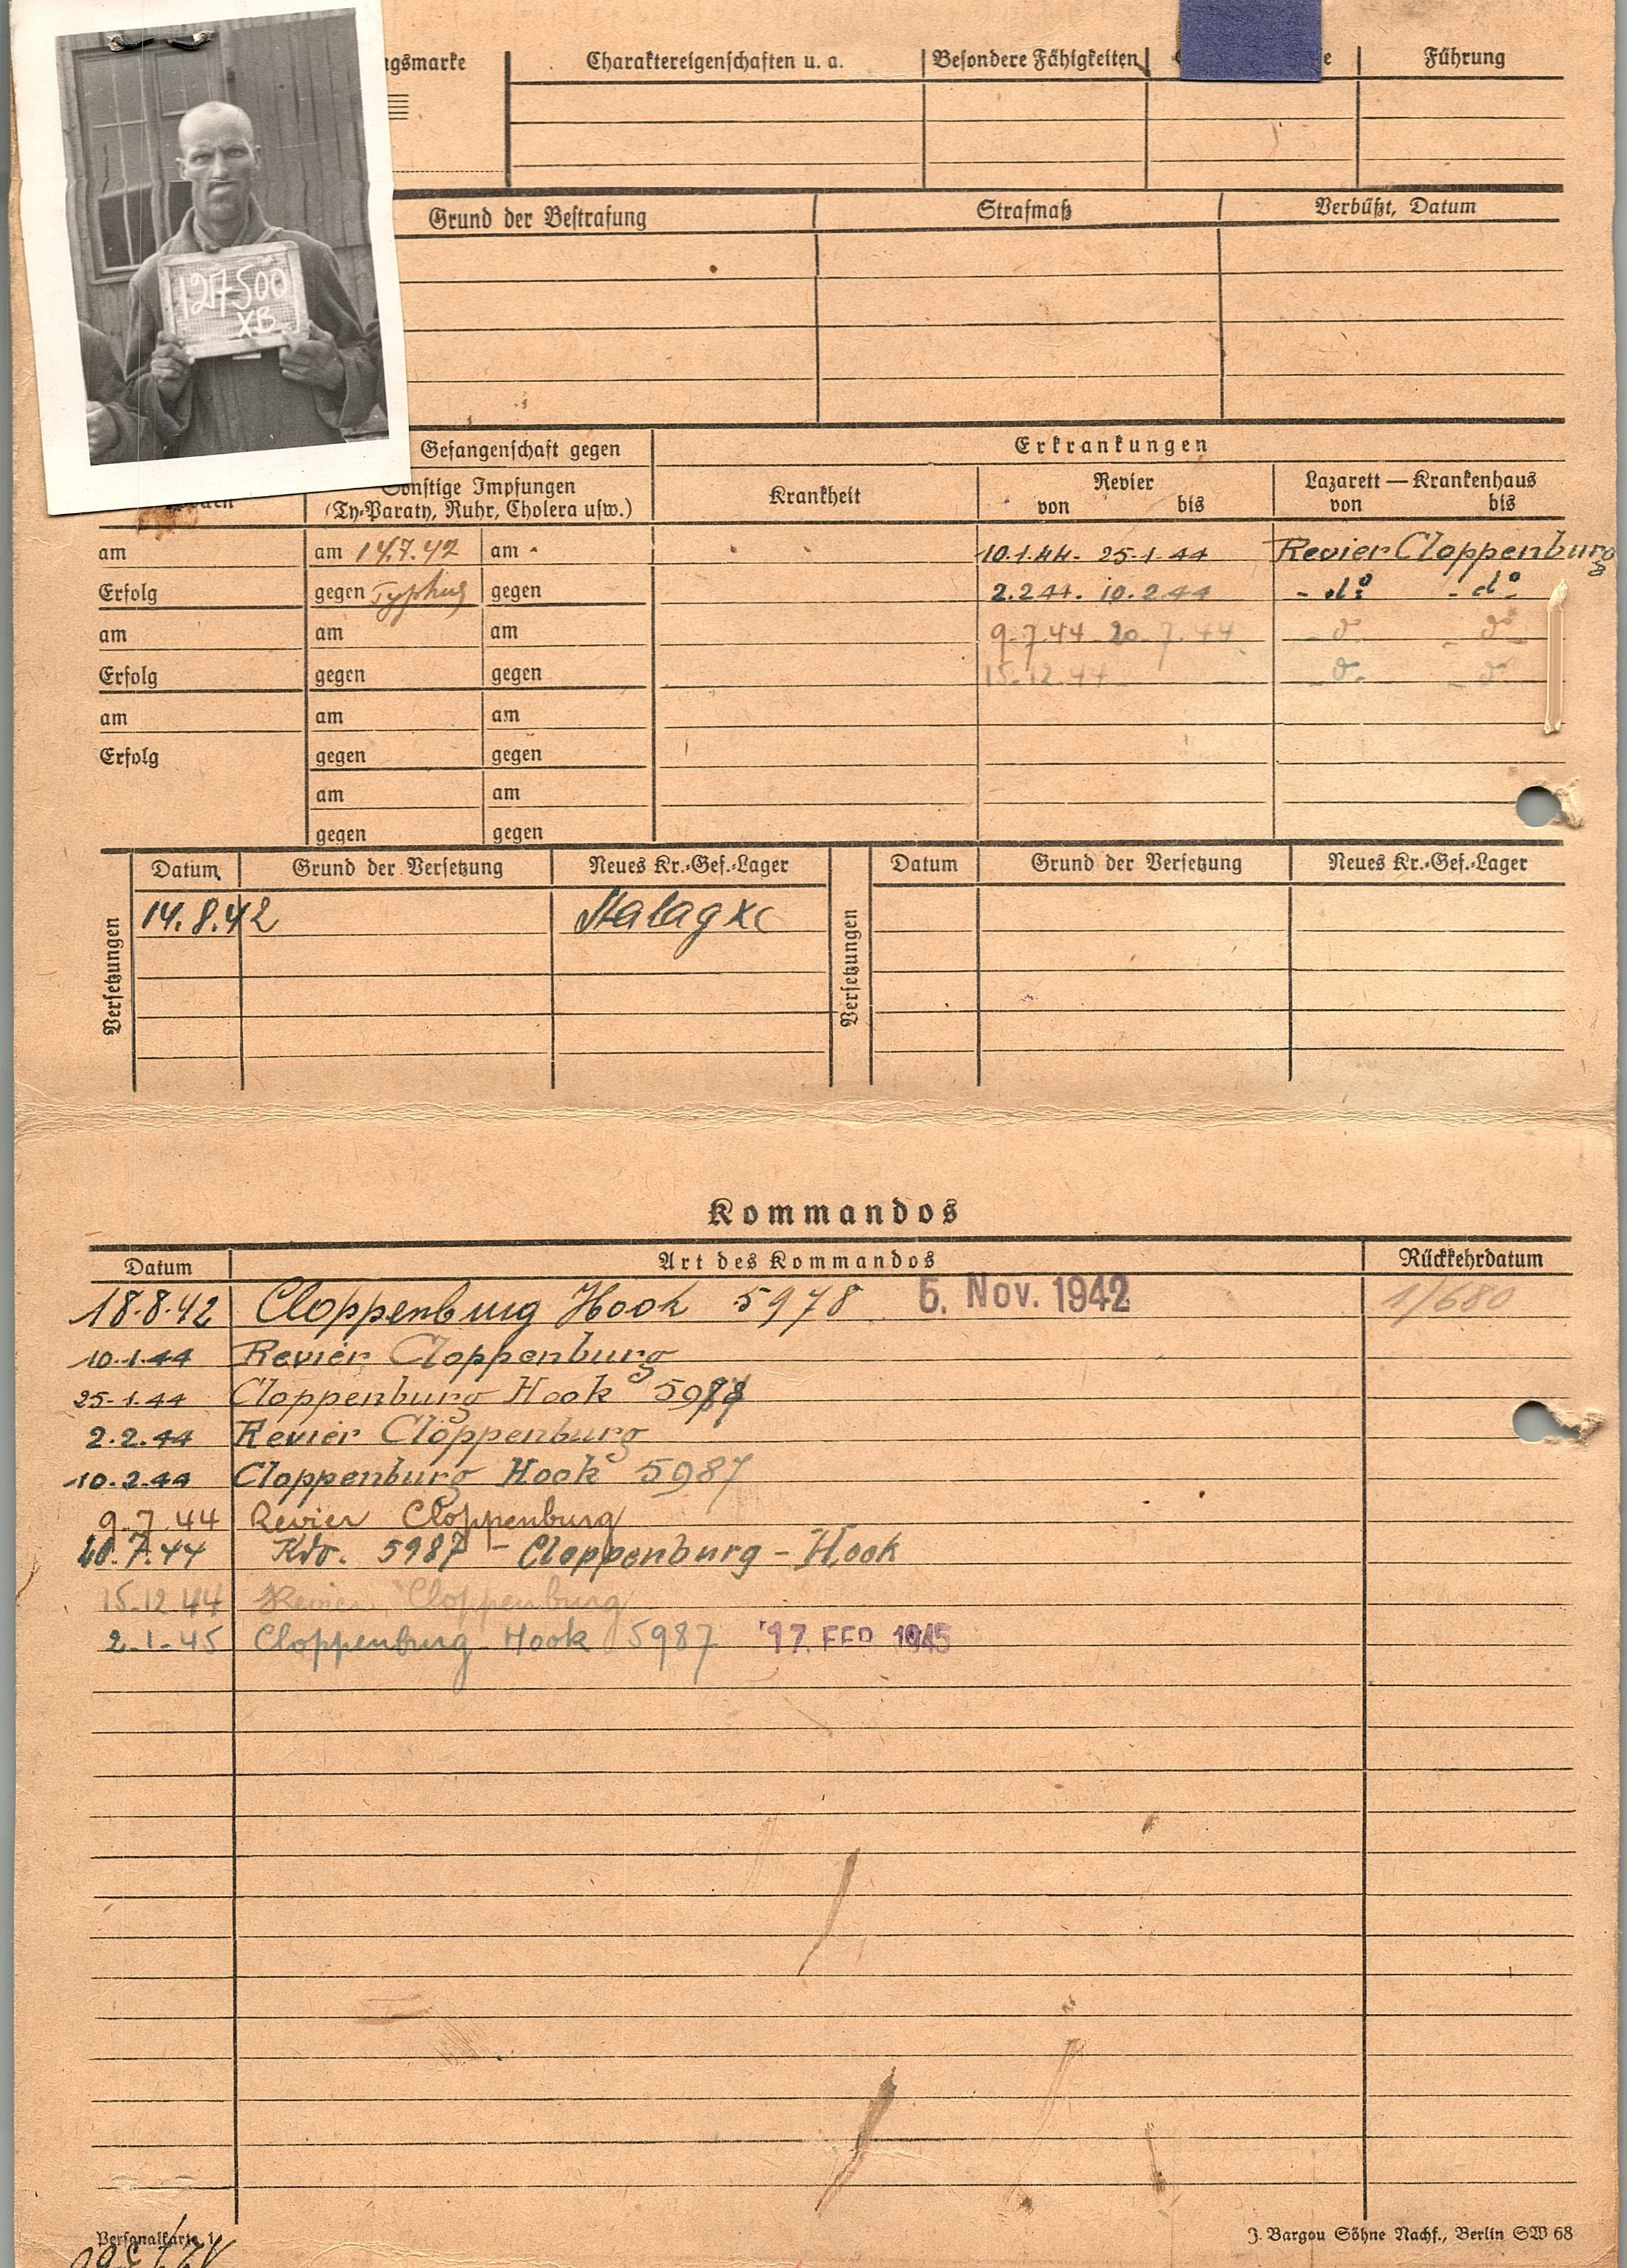 127500
XB
gsmarke Charaktereigenschaften u. a. Besondere Fähigkeiten e Führung
Grund der Bestrafung Strafmaß Verbüßt, Datum
Gefangenschaft gegen Erkrankungen
Sonstige Impfungen Krankheit Revier Lazarett — Krankenhaus
(Ty-Paraty, Ruhr, Cholera usw.) von bis von bis
am am 14.7.42 am 10.1.44. 25.1.44 Revier Cloppenburg
Erfolg gegen Typhus gegen 2.2.44. 10.2.44 - do - - do -
am am am 9.7.44 20.7.44
Erfolg gegen gegen 15.12.44
am am am
Erfolg gegen gegen
am am
gegen gegen
Versetzungen Datum Grund der Versetzung Neues Kr.-Gef.-Lager Versetzungen Datum Grund der Versetzung Neues Kr.-Gef.-Lager
14.8.42 Stalag XC
Kommandos
Datum Art des Kommandos Rückkehrdatum
18.8.42 Cloppenburg Hook 5978 5. Nov. 1942 1/680
10.1.44 Revier Cloppenburg
25.1.44 Cloppenburg Hook
2.2.44 Revier Cloppenburg
10.2.44 Cloppenburg Hook 5987
9.7.44 Revier Cloppenburg
20.7.44 Kdo. 5987 - Cloppenburg - Hook
15.12.44 Revier Cloppenburg
2.1.45 Cloppenburg - Hook 5987 17. FEB 1945
Personalkarte 1 J. Bargou Söhne Nachf., Berlin SW 68